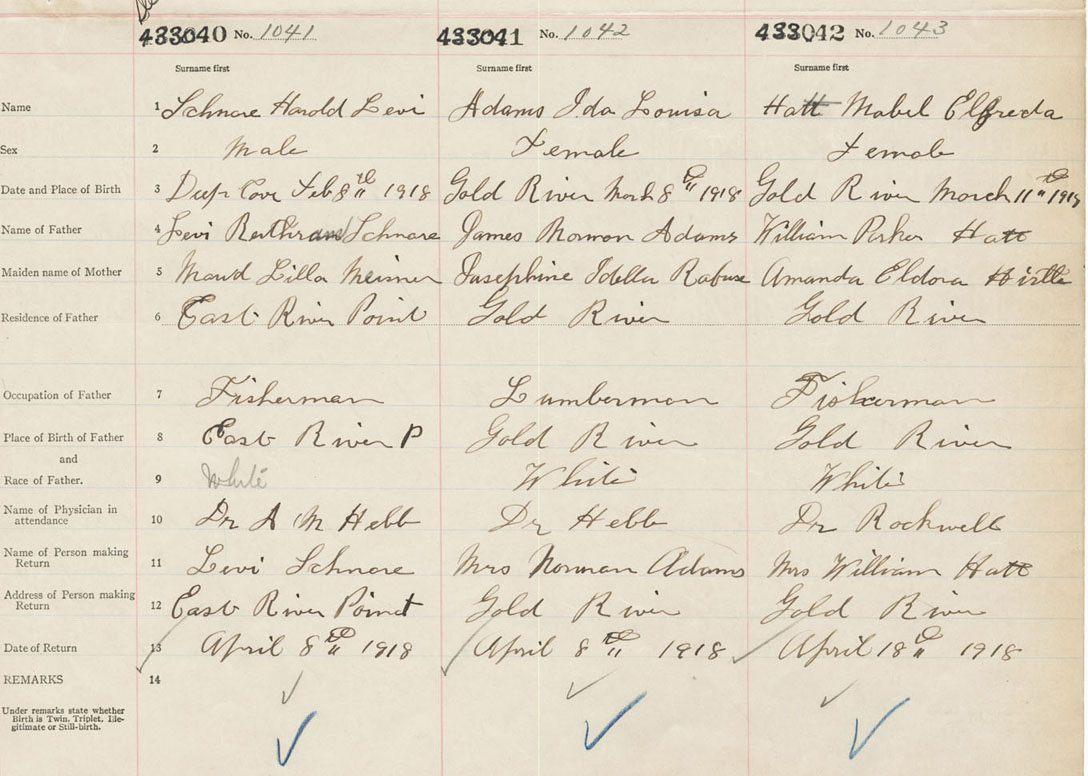 433040 No. 1041 433041 No. 1042 433042 No. 1043
Surname first Surname first Surname first
Name 1 Schnare Harold Levi Adams Ida Louisa Hatt Mabel Elfreda
Sex 2 Male Female Female
Date and Place of Birth 3 Deep Cove Feb 8th 1918 Gold River March 8th 1918 Gold River March 11th 1918
Name of Father 4 Levi Schnare James Norman Adams William Parker Hatt
Maiden name of Mother 5 Maud Lilla Meisner Josephine Idella Rafuse Amanda Eldora
Residence of Father 6 East River Point Gold River Gold River
Occupation of Father 7 Fisherman Lumberman Fisherman
Place of Birth of Father 8 East River P Gold River Gold River
and
Race of Father. 9 White White White
Name of Physician in
attendance 10 Dr A M Hebb Dr Hebb Dr Rockwell
Name of Person making
Return 11 Levi Schnare Mrs Norman Adams Mrs William Hatt
Address of Person making
Return 12 East River Point Gold River Gold River
Date of Return 13 April 8th 1918 April 8th 1918 April 18th 1918
REMARKS 14
Under remarks state whether
Birth is Twin, Triplet, Ille-
gitimate or Still-birth.